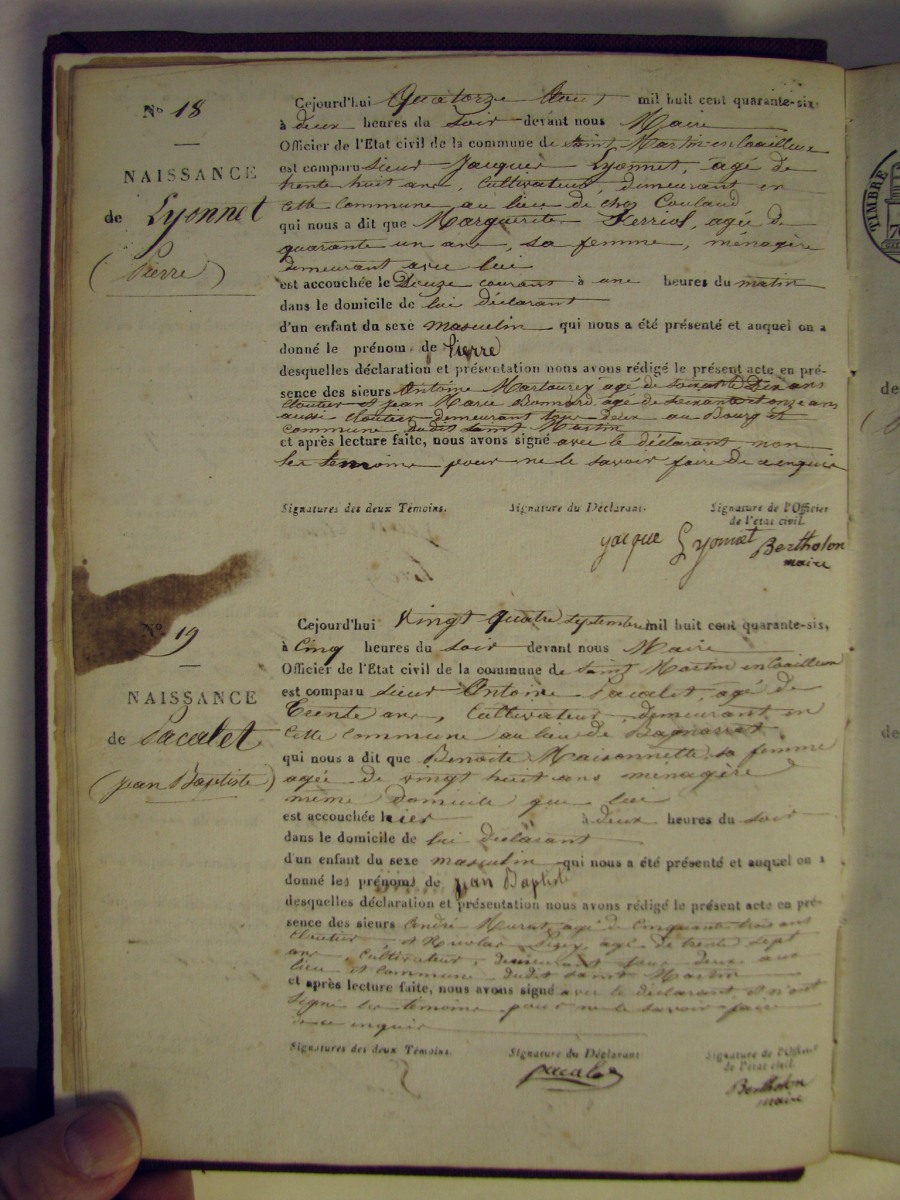 No 18
NAISSANCE
de Lyonnet
(Pierre)
Cejourd'hui Quatorze mil huit cent quarante-six
à deux heures du soir devant nous Maire
Officier de l'Etat civil de la commune de saint Martin en Coailleux
est comparu sieur Jacques Lyonnet, agé de
trente huit ans, Cultivateur, demeurant en
cette Commune au lieu de chez Couland
qui nous a dit que Marguerite Ferriol, agée de
quarante un ans, sa femme, ménagère
demeurant avec lui
est accouchée le Douze courant à une heures du matin
dans le domicile de lui déclarant
d'un enfant du sexe masculin qui nous a été présenté et auquel on a
donné le prénom de Pierre
desquelles déclaration et présentation nous avons rédigé le présent acte en pré-
sence des sieurs Antoine agé de soixante Dix ans
cloutier et Jean Marie Bonnard agé de soixante et onze ans
aussi cloutier demeurant tous deux au Bourg et
commune dudit saint Martin
et après lecture faite, nous avons signé avec le déclarant non
les temoins pour ne le savoir faire de ce enquis
Signatures des deux Témoins. Signature du Déclarant. Signature de l'Officier
de l'état civil.
yacque Lyonnet Bertholon
maire
No 19
NAISSANCE
de Pacalet
(Jean Baptiste)
Cejourd'hui Vingt quatre septembre mil huit cent quarante-six,
à Cinq heures du soir devant nous Maire
Officier de l'Etat civil de la commune de saint Martin en Coailleux
est comparu sieur Antoine Pacalet, agé de
Trente ans, Cultivateur, demeurant en
cette Commune au lieu de
qui nous a dit que Benoite Maisonnette, sa femme
agée de vingt huit ans ménagère
même domicile que lui
est accouchée hier à deux heures du soir
dans le domicile de lui déclarant
d'un enfant du sexe masculin qui nous a été présenté et auquel on a
donné les prénoms de Jean Baptiste
desquelles déclaration et présentation nous avons rédigé le présent acte en pré-
sence des sieurs André Murat, agé de Cinquante trois ans
cloutier, et Nicolas agé de trente sept
ans, cultivateur, demeurant tous deux aux
lieu et commune dudit saint Martin
et après lecture faite, nous avons signé avec le déclarant, et n'ont
signé les témoins pour ne le savoir faire
de ce enquis
Signatures des deux Témoins. Signature du Déclarant Signature de l'Officier
de l'état civil.
pacalet Bertholon
maire
TIMBRE
de
de